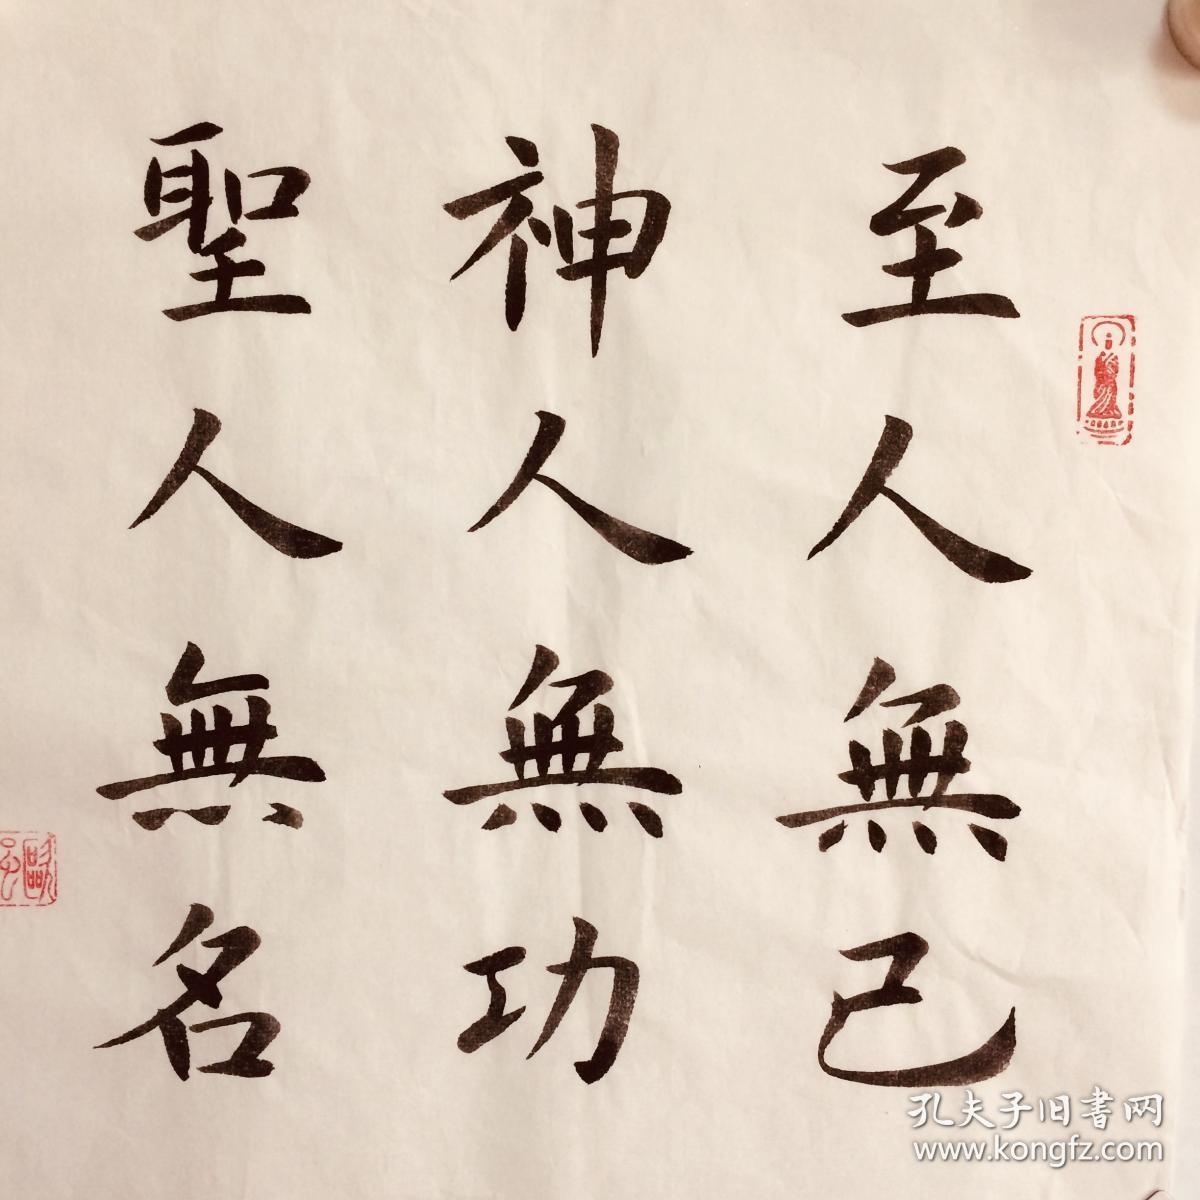 至人無己
神人無功
聖人無名
孔夫子旧書网
www.kongfz.com